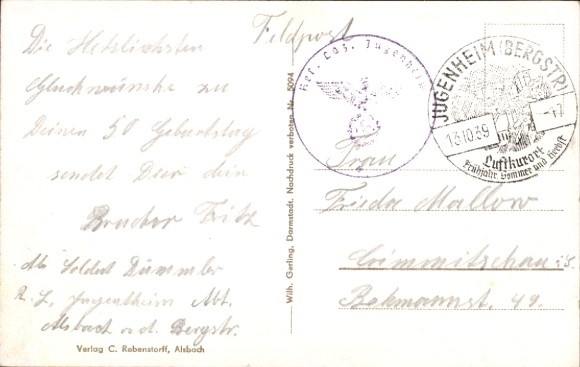 Feldpost
Die Hetslichsten
Gluchwünshe zu
Deinen 50 Geburtstag
sendet Dier dein
Bruder Fritz
Abs Soldat Dümmler
R. L. Jugentheim Abt.
Alsbach a. d. Bergstr.
Verlag C. Rebenstorff, Alsbach
Wilh. Gerling, Darmstadt. Nachdruck verboten Nr. 5094
Res. Laz. Jugenheim
JUGENHEIM (BERGSTR)
13.10.39
-17
Luftkurort
Frühjahr, Sommer und Herbst
Frau
Frieda Mallow
Crimmitschau i. S.
Bekmannst. 49.